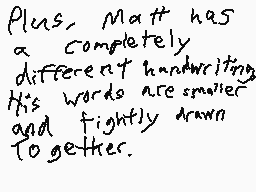 Plus, Matt has
a completely
different handwriting
His words are smaller
and tightly drawn
together.